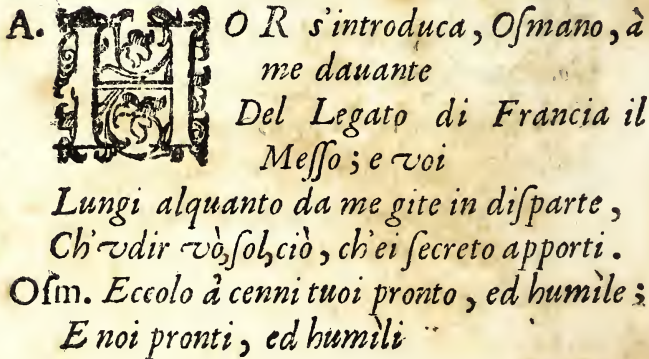 A. HOR s'introduca, Oſmano, à
me dauante
Del Legato di Francia il
Meſſo; e voi
Lungi alquanto da me gite in diſparte,
Ch'vdir vò, ſol, ciò, ch'ei ſecreto apporti.
Oſm. Eccolo à cenni tuoi pronto, ed humìle;
E noi pronti, ed humìli